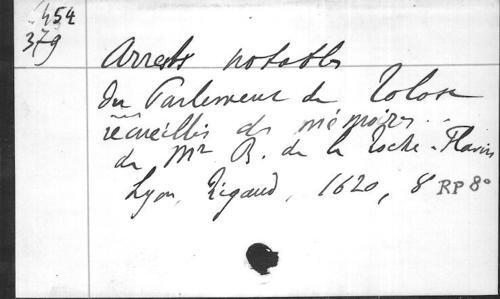 454
379
Arrests notables
du Parlement de Tolose
recueillis des mémoires..
de Mr B. de la Roche-Flavin
Lyon, Rigaud, 1620, 8 RP 8°